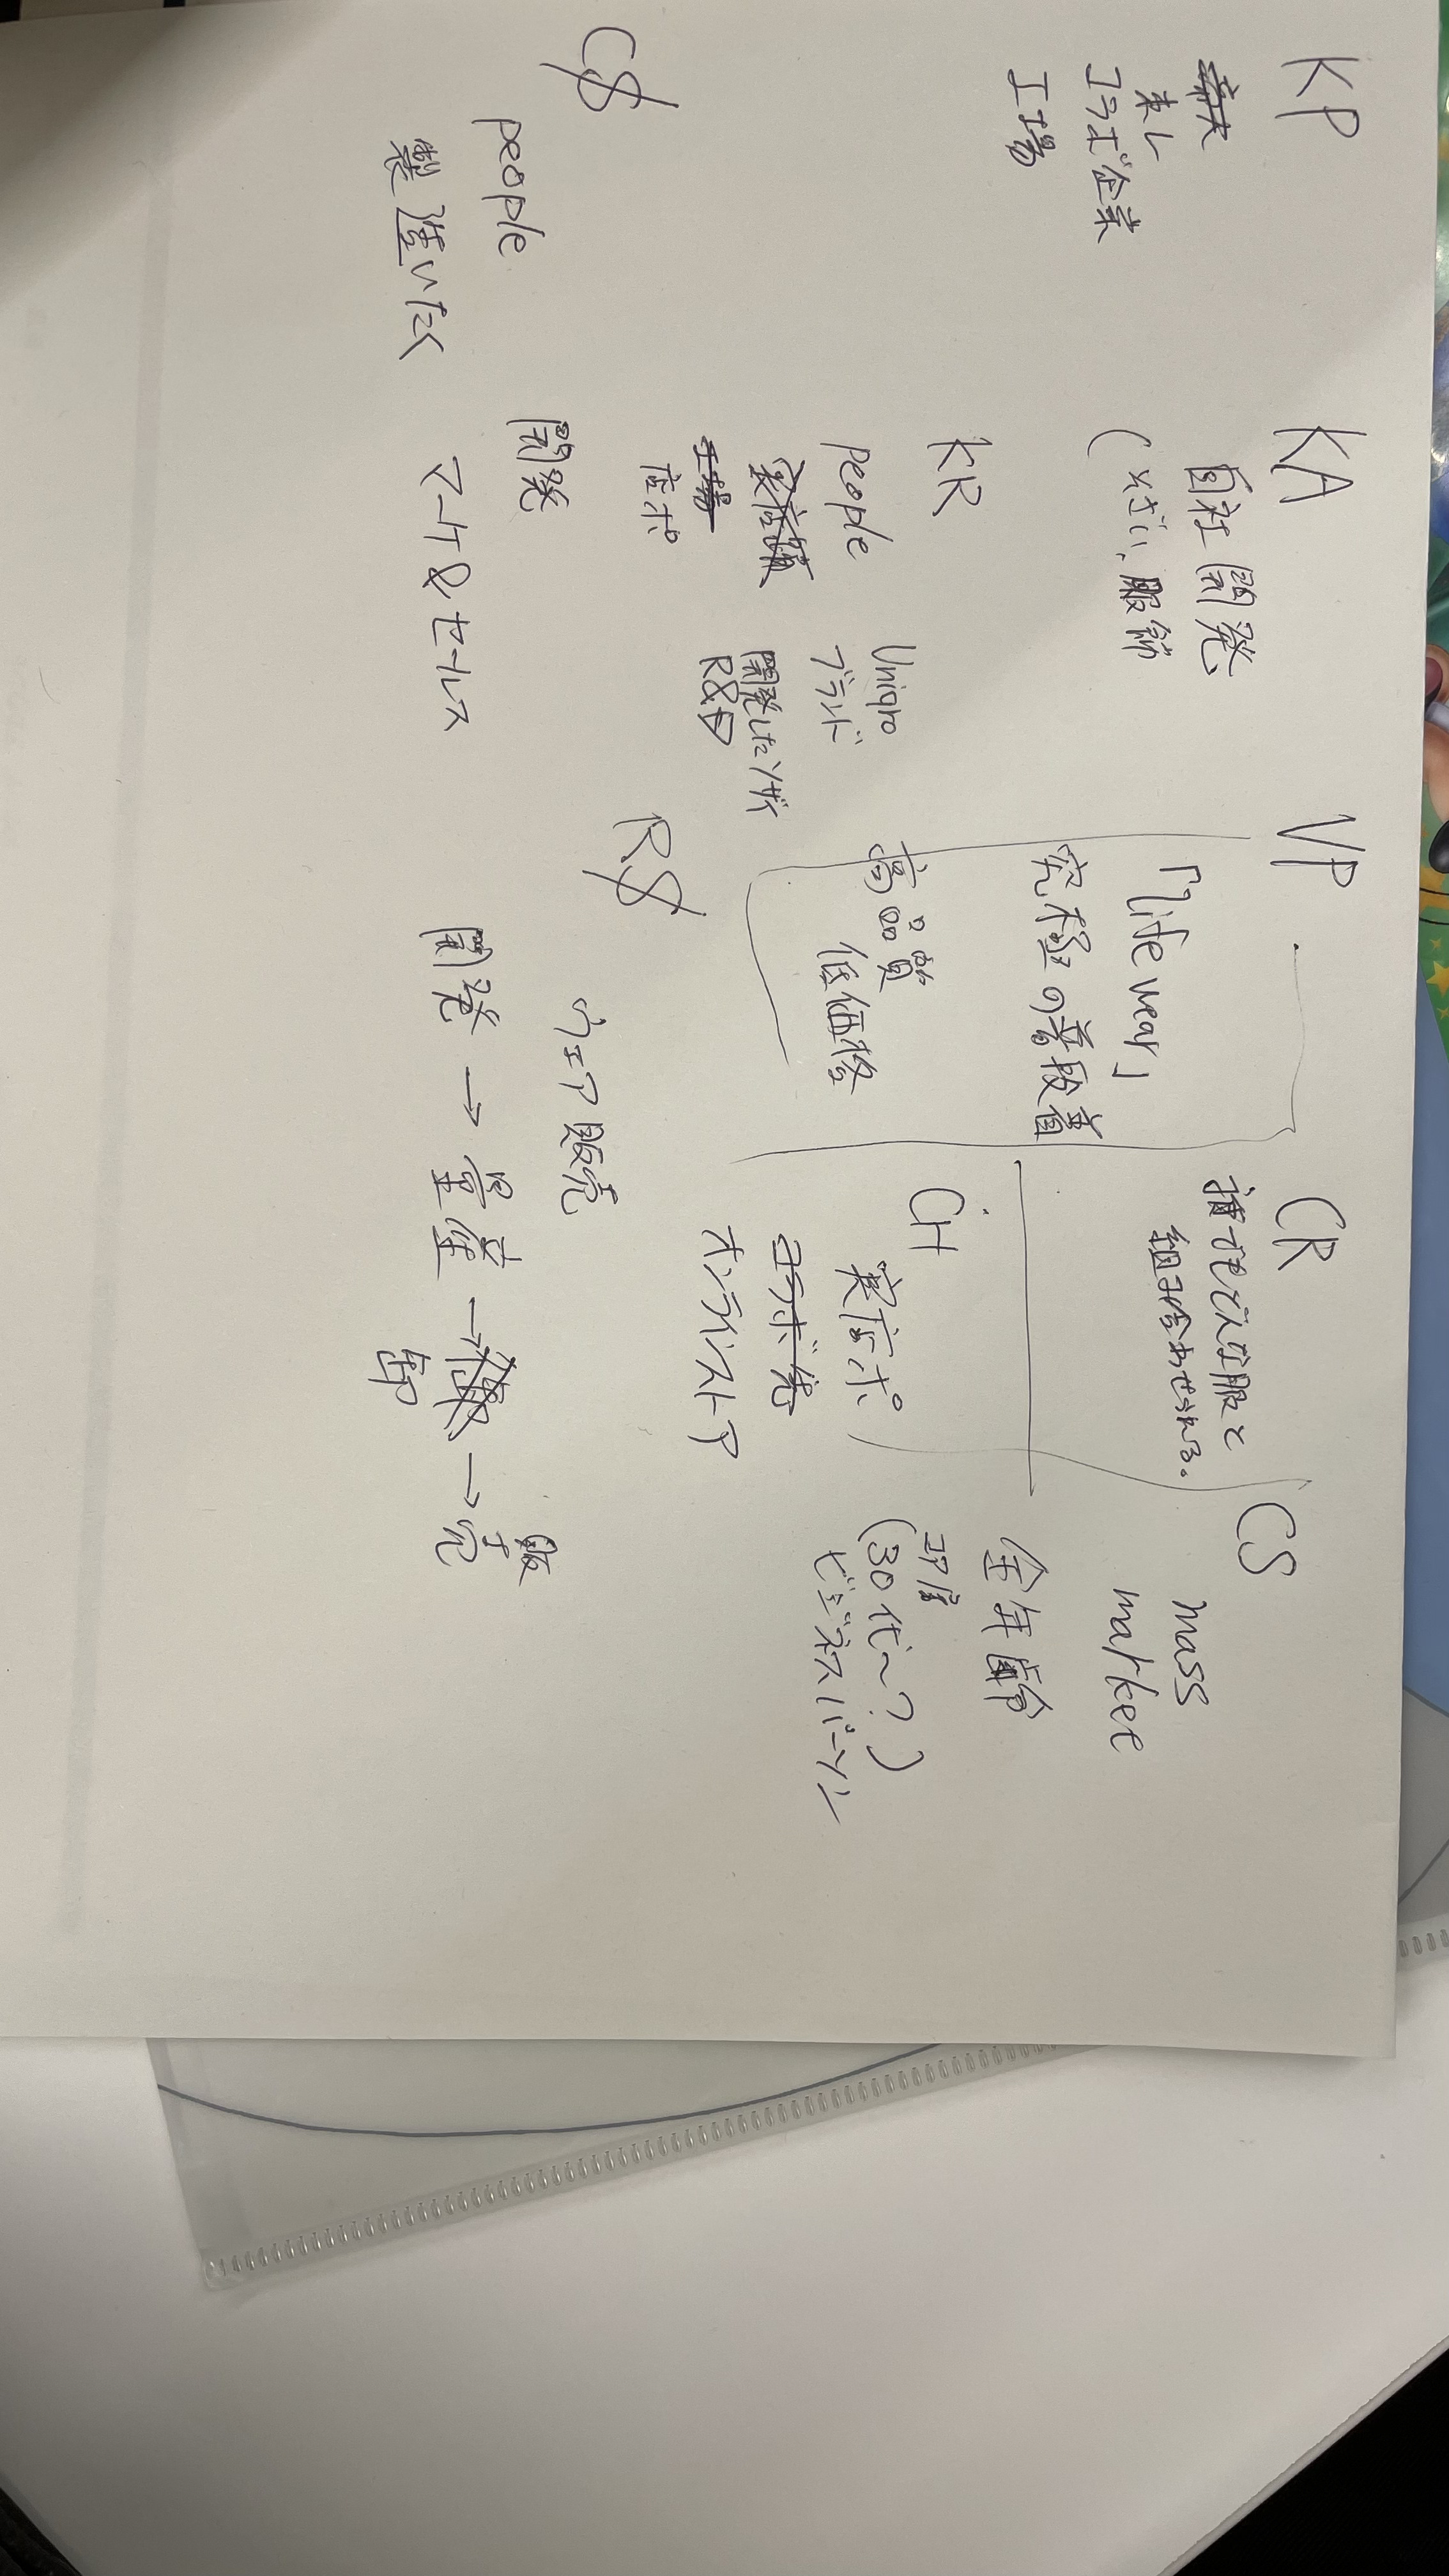 KP
東レ
コラボ企業
工場
KA
自社開発
(そざい、服飾
KR
people
店ポ
Uniqro
ブランド
開発したソザイ
R&D
VP
「Life wear」
究極の普段着
高品質
低価格
CR
誰でもどんな服と
組み合わせられる。
CH
実店ポ
コラボ先
オンラインストア
CS
mass
market
全年齢
コア層
(30代〜?)
ビジネスパーソン
C$
people
製造いたく
開発
マーケ&セールス
R$
ウェア販売
開発 → 量産 → 卸 → 販売